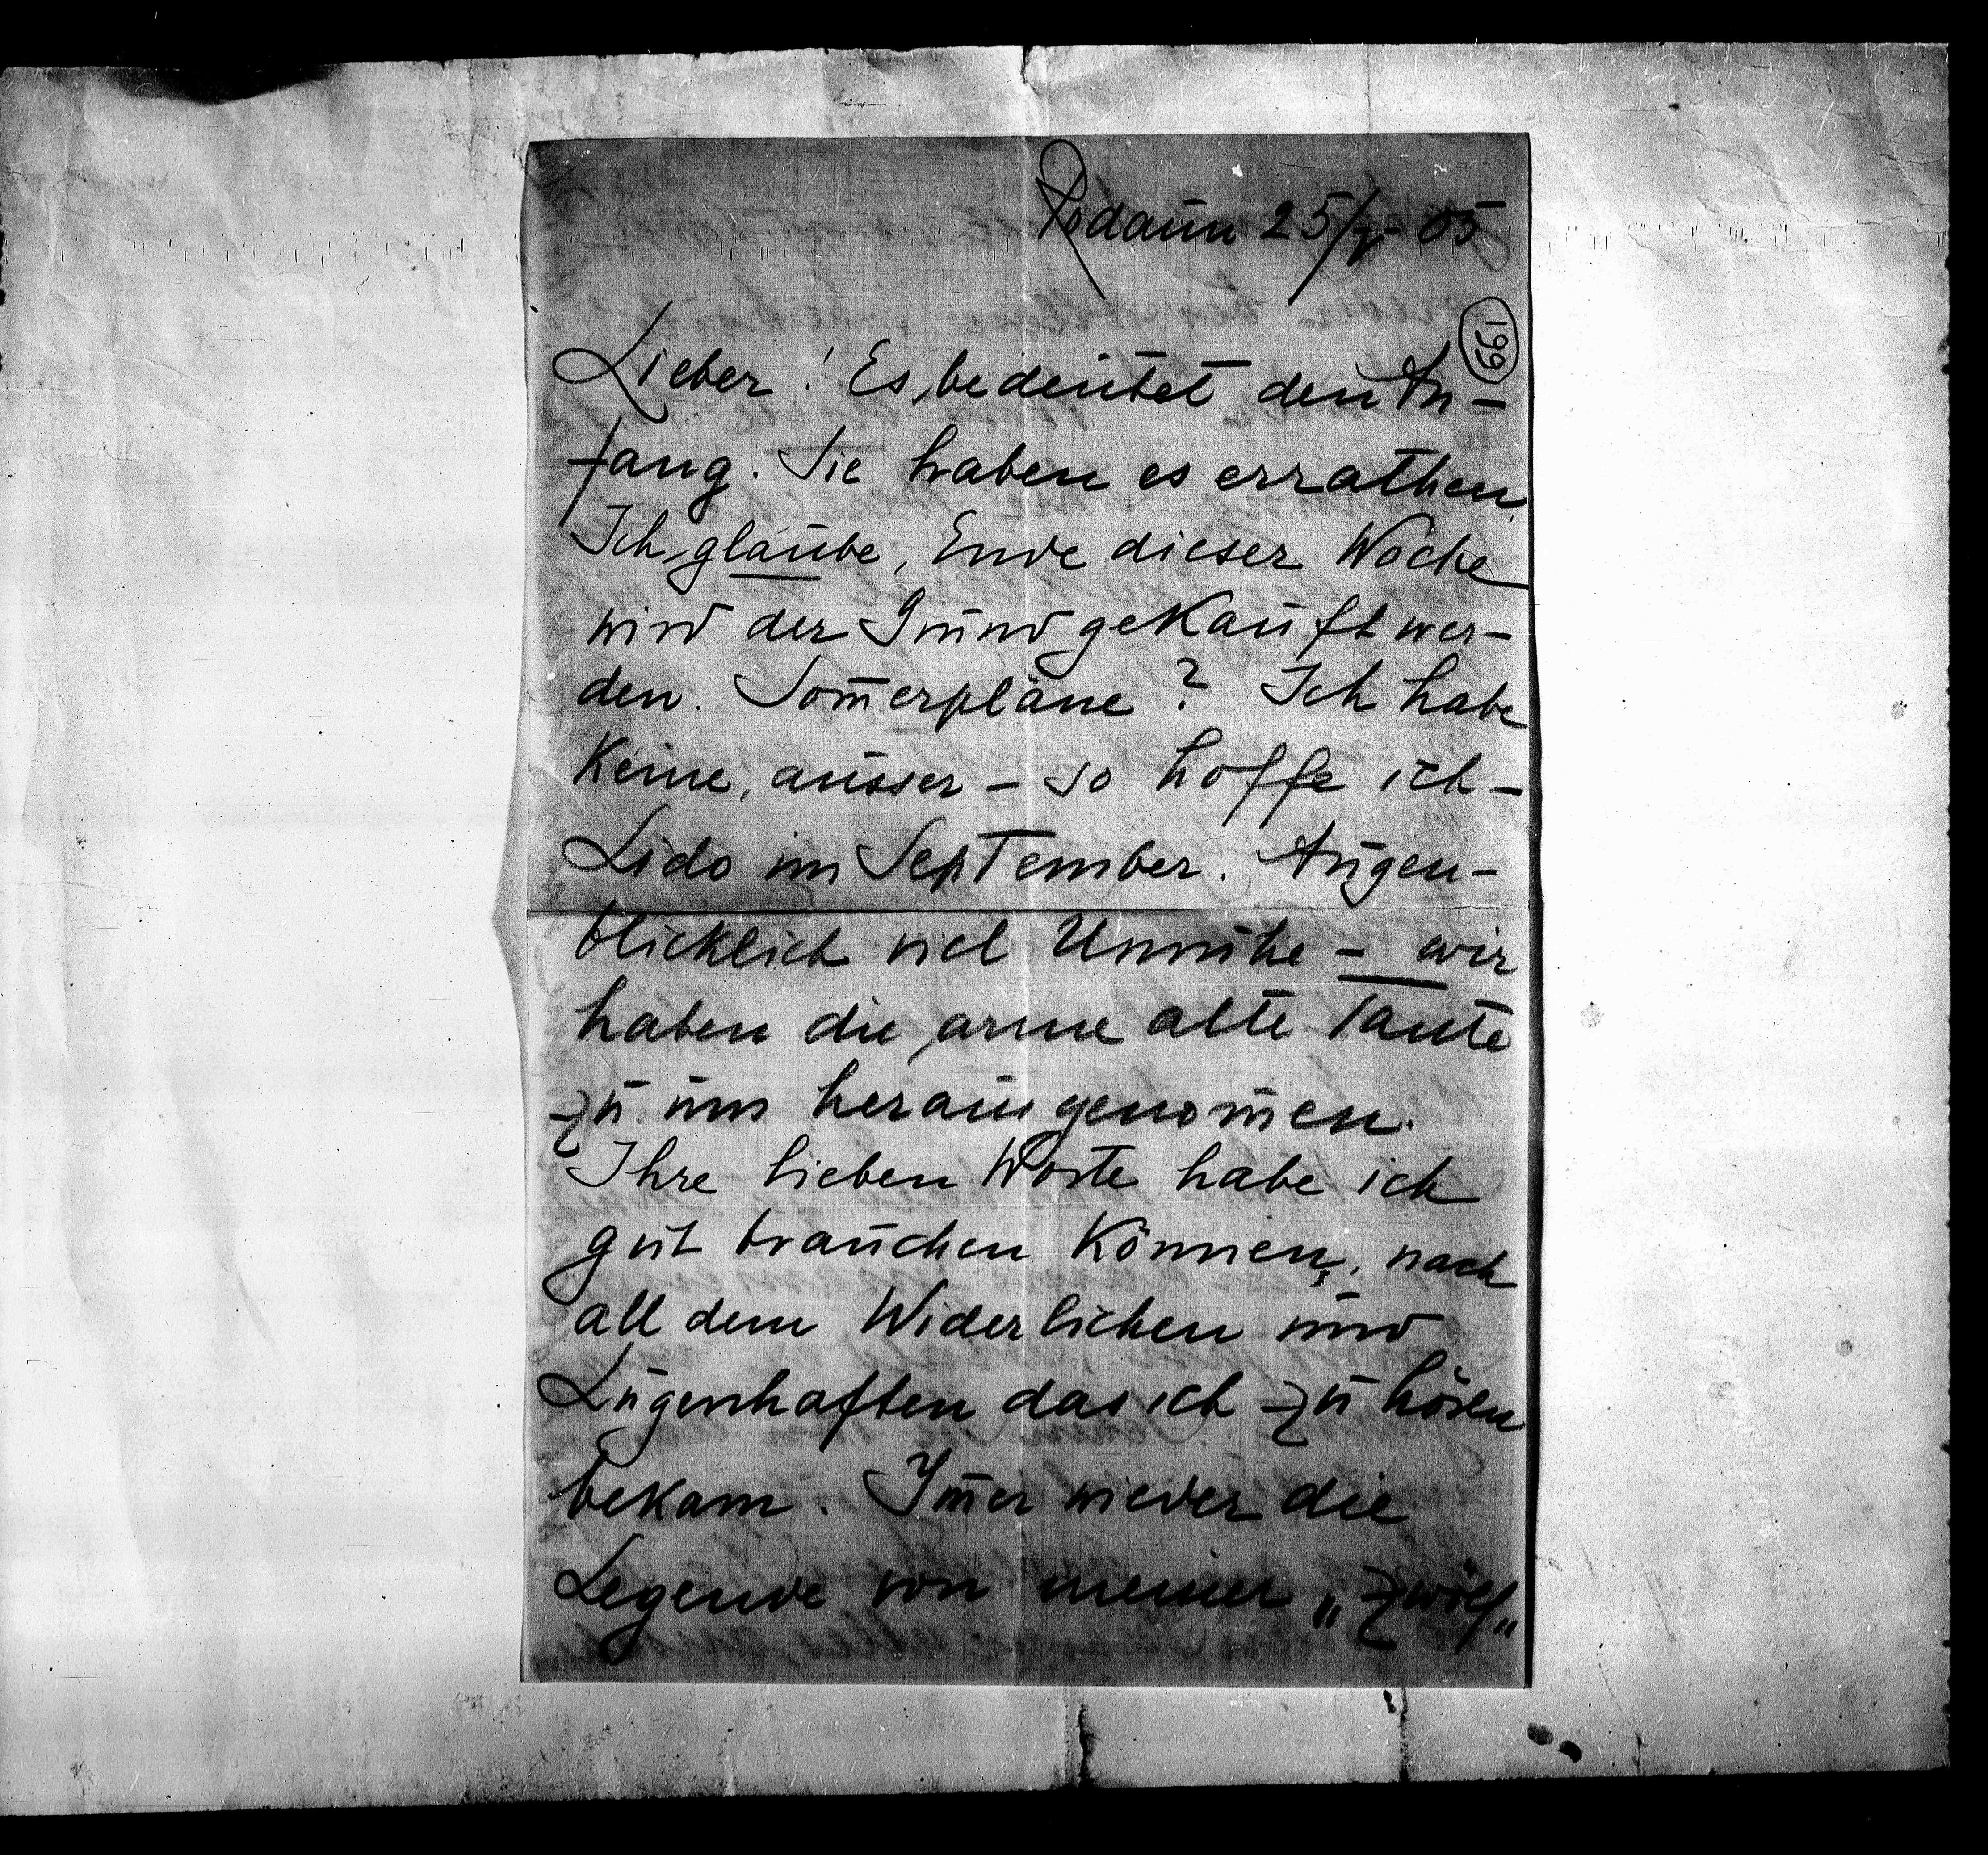 Rodaun 25/V 05
199
Lieber! Es bedeutet den An-
fang. Sie haben es errathen.
Ich glaube, Ende dieser Woche
wird der Grund gekauft wer-
den. Som̄erpläne? Ich habe
Keine, ausser – so hoffe ich –
Lido im September. Augen-
blicklich viel Unruhe – wir
haben die arme alte Tante
zu uns herausgenom̄en.
Ihre lieben Worte habe ich
gut brauchen Können, nach
all dem Widerlichen und
Lügenhaften das ich zu hören
bekam. Im̄er wieder die
Legende von meiner „Zwölf„